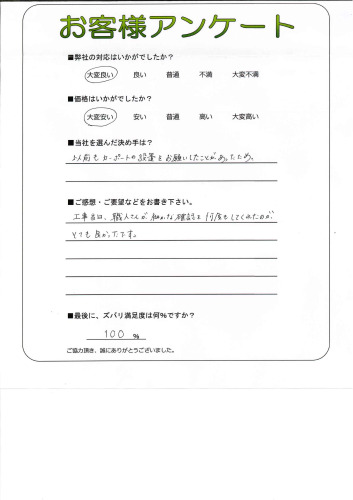 お客様アンケート
■弊社の対応はいかがでしたか?
大変良い 良い 普通 不満 大変不満
■価格はいかがでしたか?
大変安い 安い 普通 高い 大変高い
■当社を選んだ決め手は?
以前もカーポートの設置をお願いしたことがあったため。
■ご感想・ご要望などをお書き下さい。
工事当日、職人さんが細かな確認を何度もしてくれたのが、
とても良かったです。
■最後に、ズバリ満足度は何%ですか?
100 %
ご協力頂き、誠にありがとうございました。